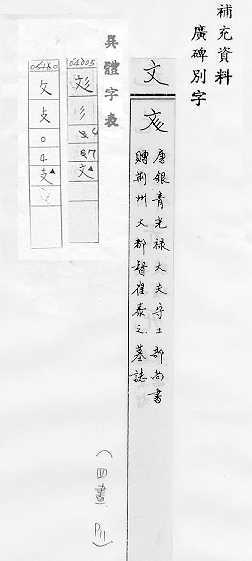 補充資料
廣碑別字
文
唐銀青光祿大夫守工部尚書
贈荊州大都督崔泰之墓誌
異體字表
彣
文
攵
攴
0
4
支
(四畫 P11)